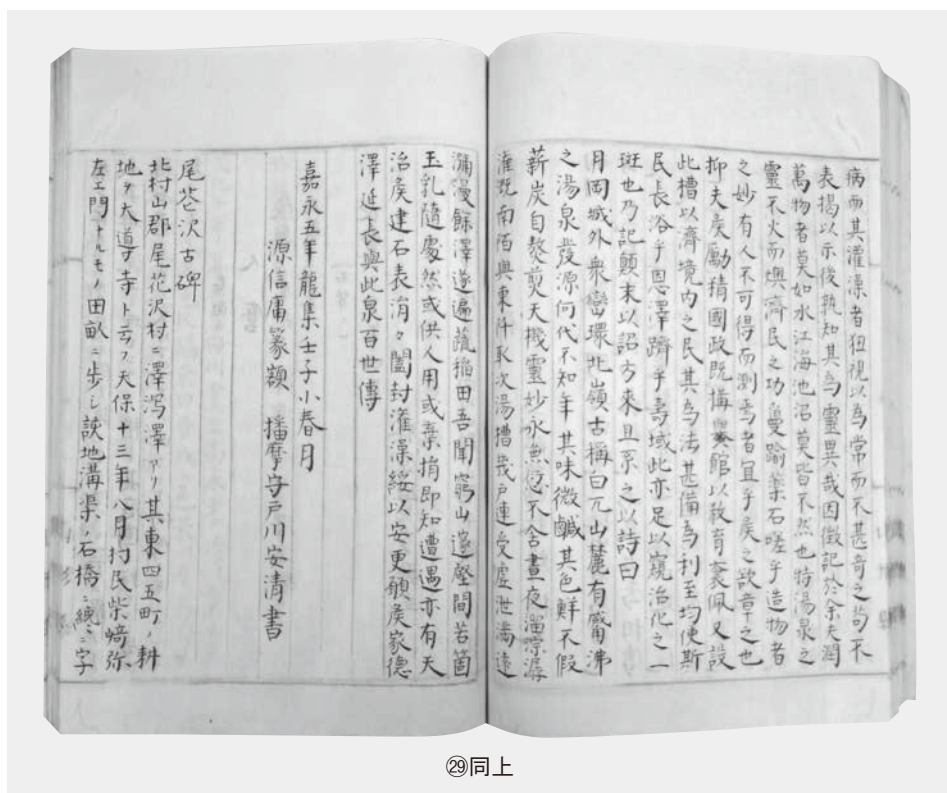 病而其灌澡者狃視以為常而不甚奇之苟不
表掲以示後孰知其為靈異哉因徴記於余夫潤
萬物者莫如水江海池沼莫皆不然也特湯泉之
靈不火而燠濟民之功敻踰藥石嗟乎造物者
之妙有人不可得而測焉者宜乎矦之欲章之也
抑夫矦勵精國政既搆黌館以教育衰佩又設
此槽以濟境内之民其為法甚備為利至均使斯
民長浴乎恩澤躋乎壽域此亦足以窺治化之一
斑也乃記顛末以詔方來且系之以詩曰
月岡城外衆巒環北嶺古稱白兀山麓有觱沸
之湯泉發源何代不知年其味微鹹其色鮮不假
薪炭自熬煎天機靈妙永無愆不舎晝夜溜淙潺
灌既南陌與東阡取次湯槽幾戸連受處泄満遠
瀰漫餘澤遂遍蔬稲田吾聞窮山邃壑間若箇
玉乳隨處然或供人用或棄捐即知遭遇亦有天
治矦建石表涓々闔封灌澡綏以安更願矦家徳
澤延長與此泉百世傳
嘉永五年龍集壬子小春月
源信庸篆額　播摩守戸川安清書
尾花沢古碑
北村山郡尾花沢村ニ澤瀉澤アリ其東四五町ノ耕
地ヲ大道寺ト云フ天保十三年八月村民柴﨑弥
左エ門ナルモノ田畝ニ歩シ該地溝渠ノ石橋ニ続ニ字
㉙同上